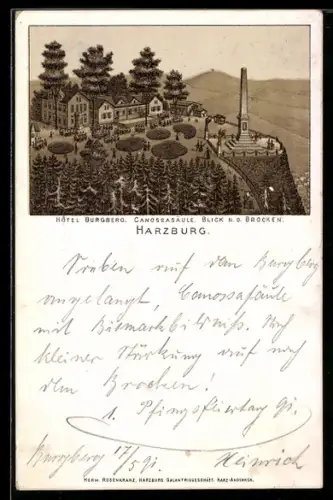 HÔTEL BURGBERG. CANOSSASÄULE. BLICK N. D. BROCKEN.
HARZBURG.
Soeben auf dem Burgberg
angelangt, Canossasäule
mit Bismarkbildniß. Nach
kleiner Stärkung auf nach
dem Brocken!
1. Pfingsfeiertag 91.
Burgberg 17/5 91. Heinrich
HERM. ROSENKRANZ, HARZBURG. GALANTRIEGESCHÄFT. HARZ-ANDENKEN.